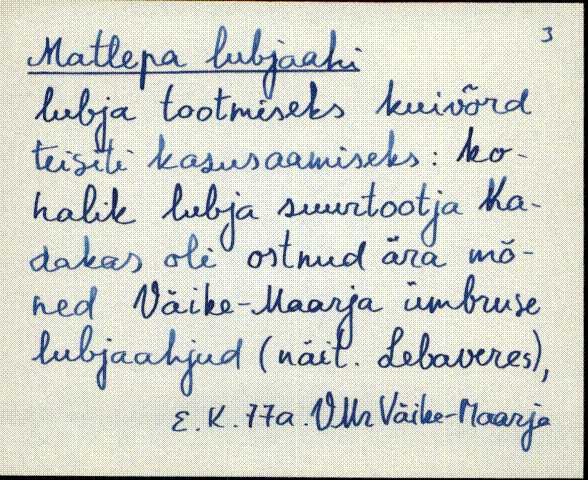 3
Matlepa lubjaahi
lubja tootmiseks kuivõrd
teisiti kasusaamiseks: ko-
halik lubja suurtootja Ka-
dakas oli ostnud ära mõ-
ned Väike-Maarja ümbruse
lubjaahjud (näit. Lebaveres),
E.K. 77a. VMr Väike-Maarja